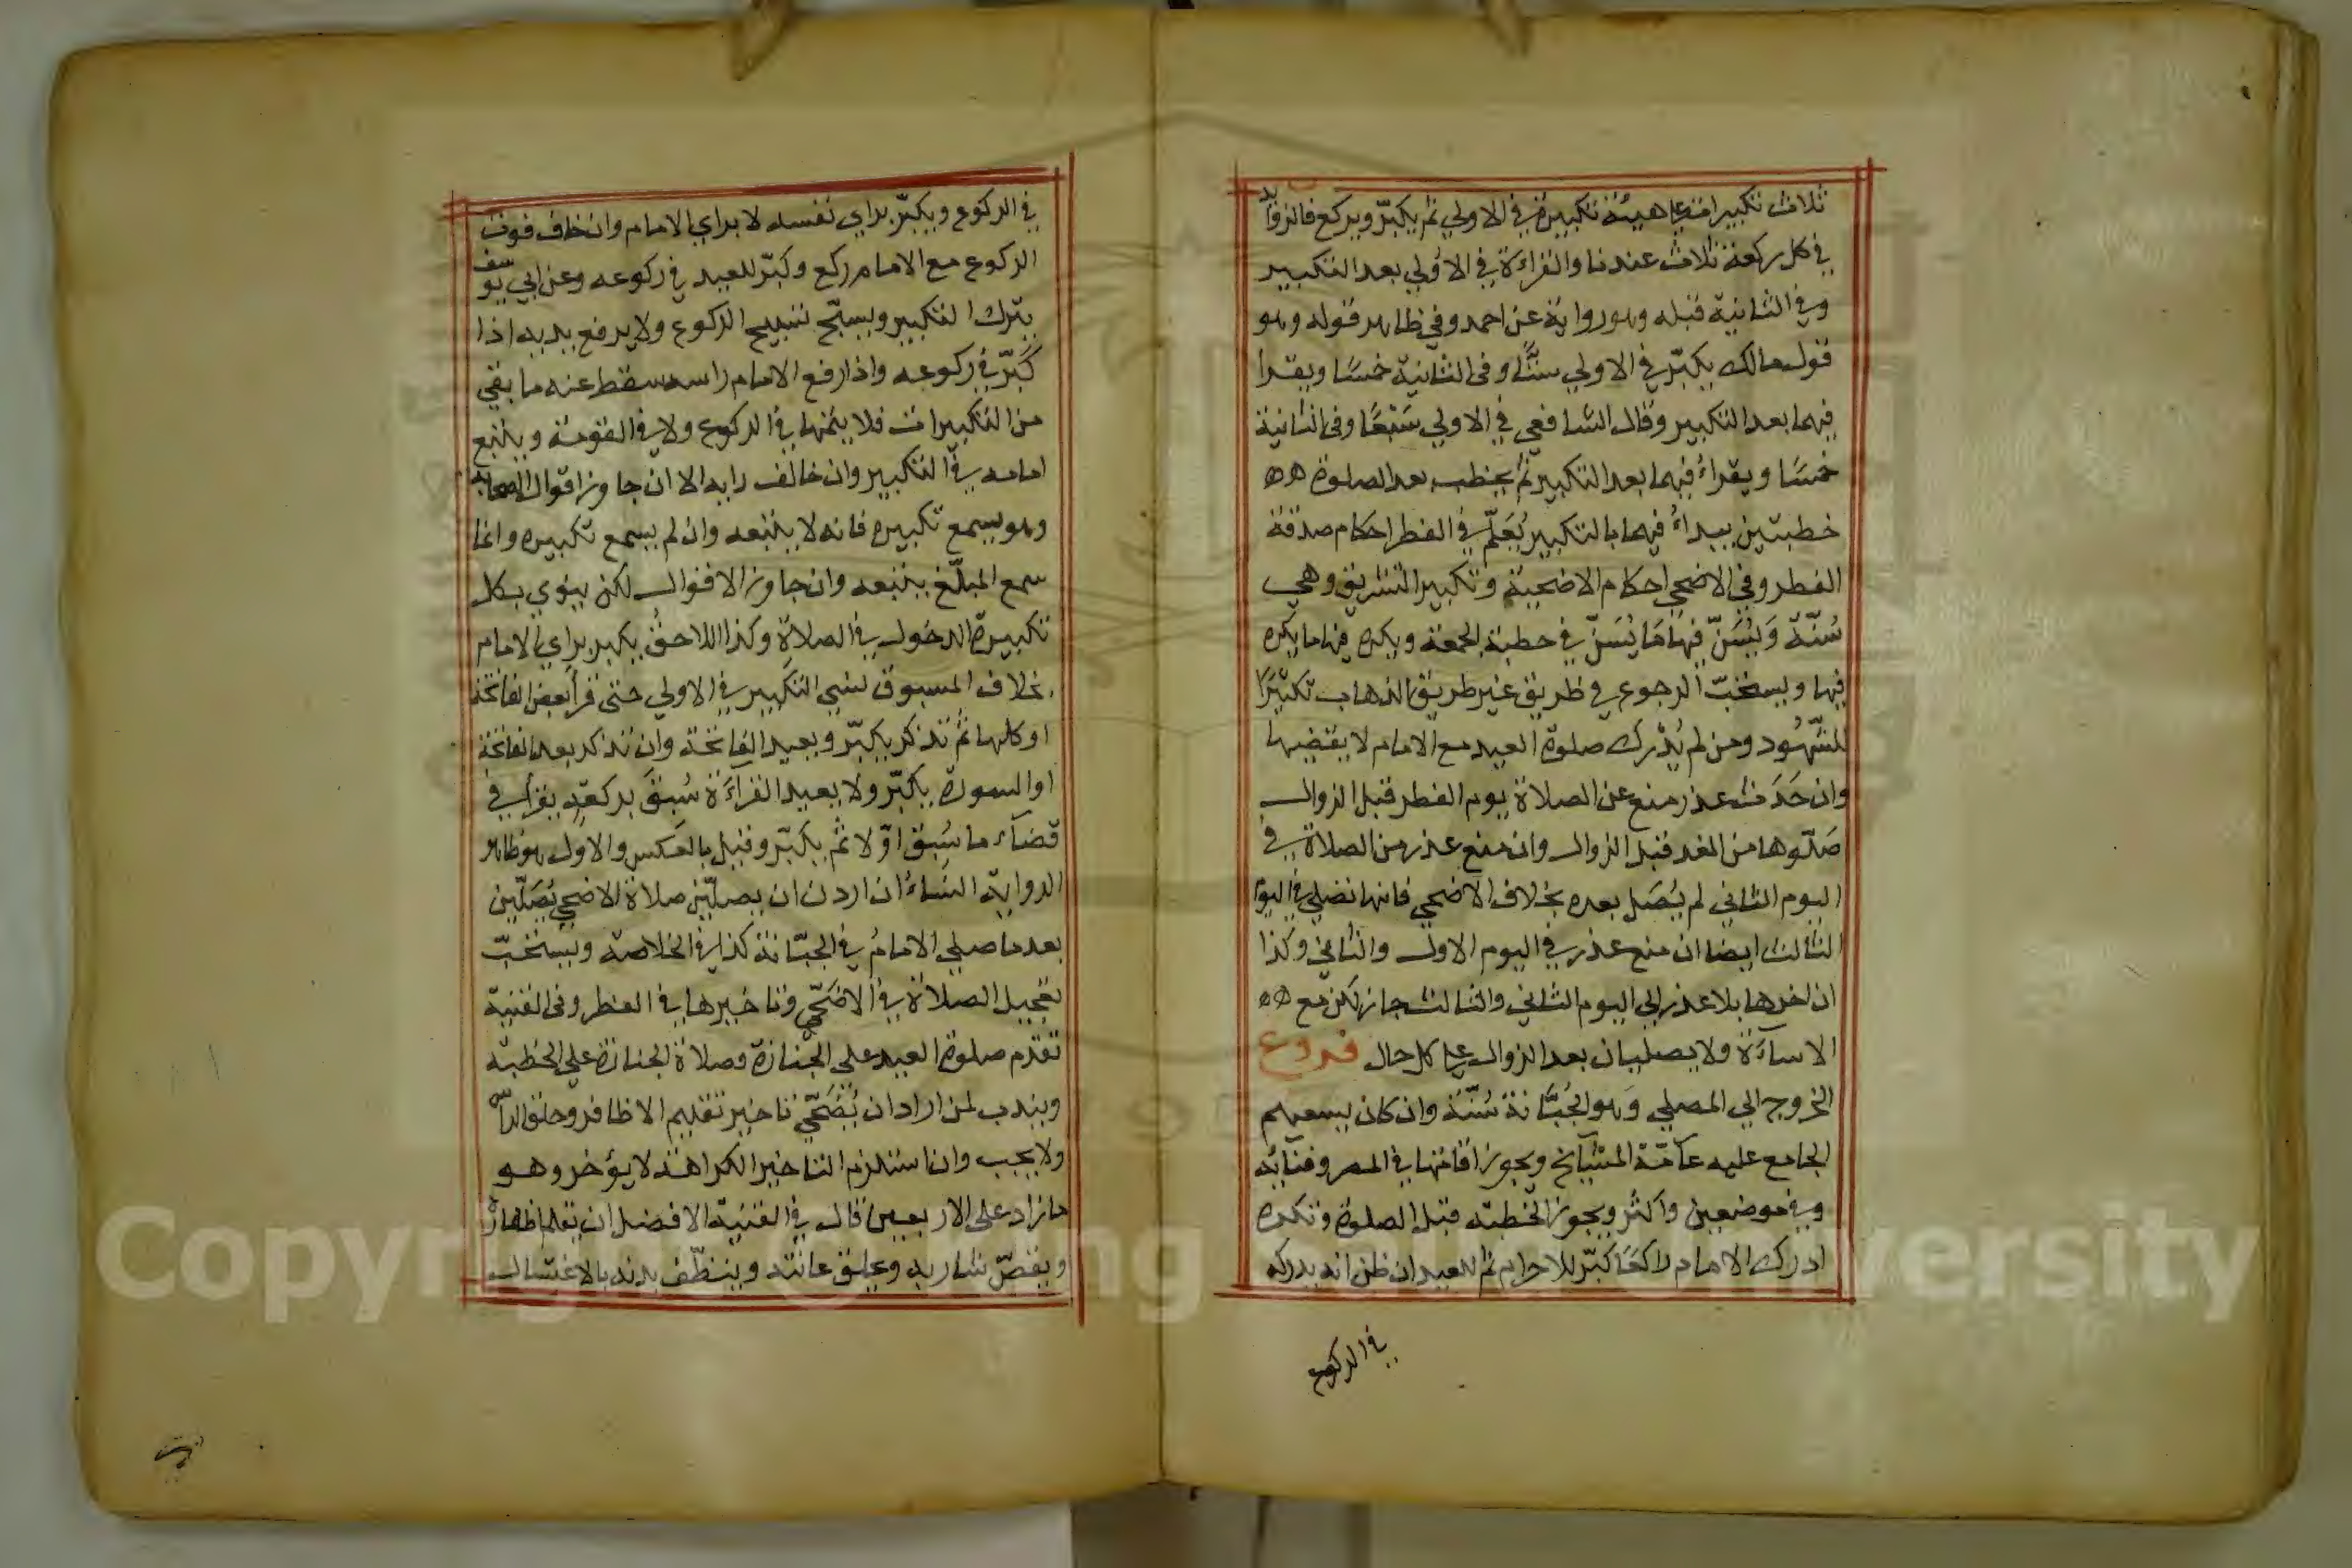 ثلاث تكبيرات على هيئة تكبيرة في الاولي ثم يكبّر ويركع فالزوائد
في كل ركعة ثلاث عندنا والقراءة في الاولي بعد التكبير
وفي الثانية قبله وهو رواية عن احمد وفي ظاهر قوله وهو
قول مالك يكبّر في الاولي ستًّا وفى الثانية خمسًا ويقرا
فيهما بعد التكبير وقال الشافعي في الاولي سَبْعًا وفى الثانية
خمسًا ويقراءُ فيهما بعد التكبير ثم يخطب بعد الصلوة
خطبتين يبداءُ فيهما بالتكبير يُعَلّم في الفطر احكام صدقة
الفطر وفى الاضحي احكام الاضحية وتكبير التشريق وهي
سُنّة وَيُسَنّ فيها مَا يُسَنّ في خطبة الجمعة ويكره فيها ما يكره
فيها ويستحبّ الرجوع في طريق غير طريق الذهاب تكثيرًا
للشّهُود ومن لم يُدْرك صلوة العيد مع الامام لا يقضيها
وان حَدَث عذر منع عن الصلاة يوم الفطر قبل الزوال
صَلّوها من الغد قبل الزوال وان منع عذر من الصلاة في
اليوم الثاني لم يُصَل بعده بخلاف الاضحي فانها تصلي في اليوم
الثالث ايضا ان منع عذر في اليوم الاول والثاني وكذا
ان اخرها بلا عذر الي اليوم الثاني والثالث جاز لكن مع
الاساءَة ولا يصليان بعد الزوال على كل حال فروع
الخروج الي المصلي وَهو الجَبّانة سُنّة وان كان يسعهم
الجامع عليه عآمّة المشايخ ويجوز اقامتها في المصر وفنآئه
وفي موضعين واكثر ويجوز الخطبة قبل الصلوة وتكره
ادرك الامام راكعًا كبّر للاحرام ثم للعيد ان ظن انه يدركه
في الركوع
في الركوع ويكبّر براي نفسه لا براي الامام وان خاف فوت
الركوع مع الامام ركع وكبّر للعيد في ركوعه وعن ابي يوسف
يترك التكبير ويسبّح تسبيح الركوع ولا يرفع يديه اذا
كَبّر في ركوعه واذا رفع الامام راسه سقط عنه ما بقي
من التكبيرات فلا يتمها في الركوع ولا في القومة ويتبع
امامه في التكبير وان خالف رايه الا ان جاوز اقوال الصحابة
وهو يسمع تكبيره فانه لا يتبعه وان لم يسمع تكبيره وانما
سمع المبلّغ يتبعه وان جاوز الاقوال لكن ينوي بكل
تكبيرة الدخول في الصلاة وكذا اللاحق يكبر براي الامام
بخلاف المسبوق نسي التكبير في الاولي حتى قرأ بعض الفاتحة
او كلها ثم تذكر يكبّر ويعيد الفاتحة وان تذكر بعد الفاتحة
او السورة يكبّر ولا يعيد القراءَة سُبقَ بركعةٍ يقرأ في
قضآء ما سُبق اوّلا ثم يكبّر وقيل بالعكس والاول هو ظاهر
الرواية النساءُ ان اردن ان يصلّين صلاة الاضحي يُصَلّين
بعد ما صلي الامامُ في الجبّانة كذا في الخلاصة ويستحبّ
تعجيل الصلاة في الاضَحّي وتاخيرها في الفطر وفى القنية
تقدم صلوة العيد على الجنازة وصلاة الجنازة علي الخطبة
ويندب لمن اراد ان يُضَحّي تاخير تقليم الاظافر وحلق الراس
ولا يجب وان استلزم التاخير الكراهة لا يؤخر وهو
ما زاد على الاربعين قال في القنية الافضل ان يقلم اظفاره
ويقصّ شاربه وعلق عانته وينظّف بدنه بالاغتسال